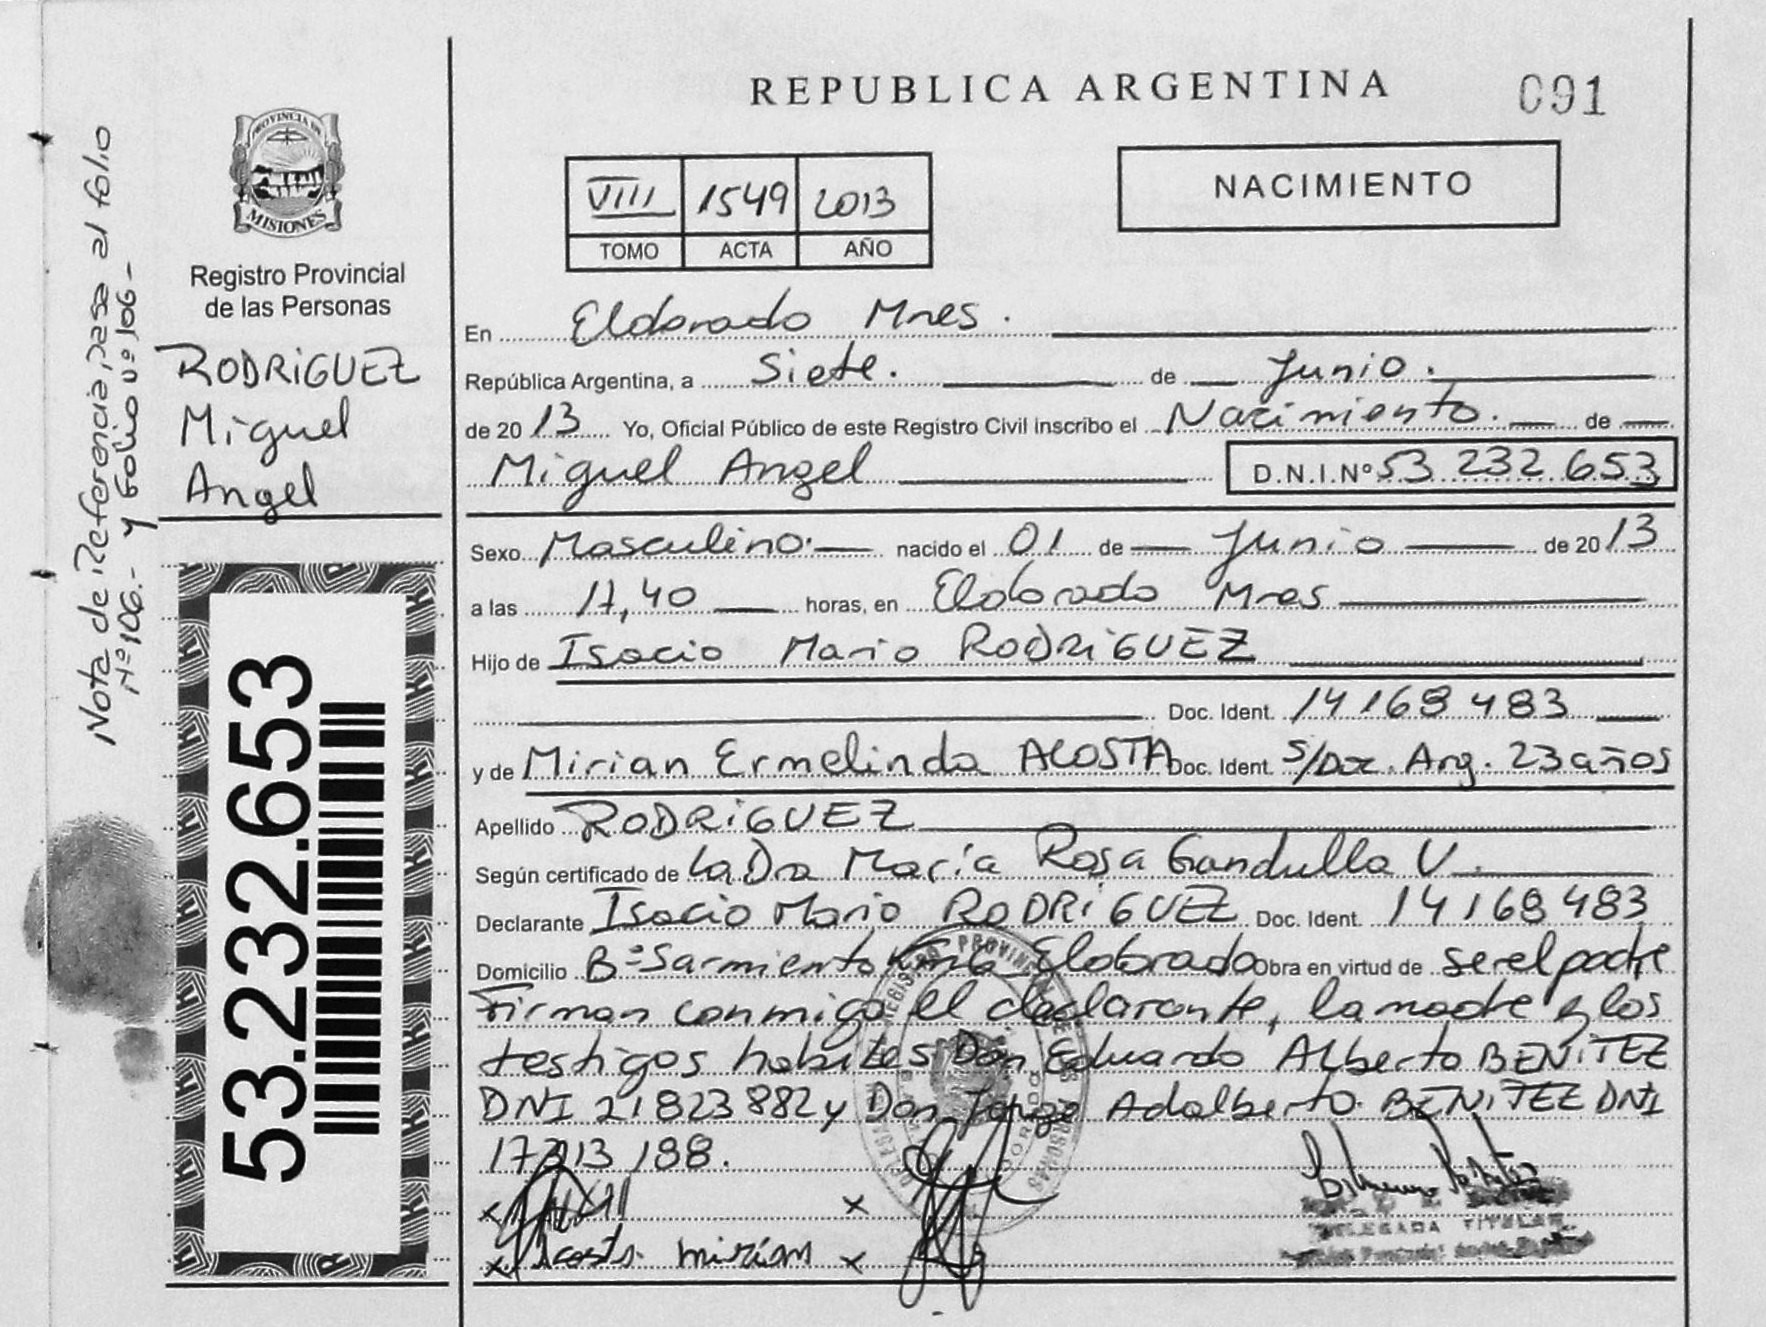 REPUBLICA ARGENTINA
091
PROVINCIA DE
MISIONES
Registro Provincial
de las Personas
RODRIGUEZ
Miguel
Angel
Nota de Referencia, pasa al folio
Nº 106.- y folio Nº 106-
53.232.653
VIII 1549 2013
TOMO ACTA AÑO
NACIMIENTO
En Eldorado Mnes.
República Argentina, a Siete. de Junio.
de 2013 Yo, Oficial Público de este Registro Civil inscribo el Nacimiento. de
Miguel Angel D.N.I.Nº 53 232 653
Sexo Masculino. nacido el 01 de Junio de 2013
a las 17,40 horas, en Eldorado Mnes
Hijo de Isacio Mario RODRIGUEZ
Doc. Ident. 14 168 483
y de Mirian Ermelinda ACOSTA Doc. Ident. s/Doc. Arg. 23 años
Apellido RODRIGUEZ
Según certificado de La Dra María Rosa Gandulla V.
Declarante Isacio Mario RODRIGUEZ Doc. Ident. 14 168 483
Domicilio Bº Sarmiento Km6 Eldorado Obra en virtud de ser el padre
Firman conmigo el declarante, la madre y los
testigos habiles Don Eduardo Alberto BENITEZ
DNI 21 823 882 y Don Jorge Adalberto BENITEZ DNI
17 313 188.
x x
x Acosta mirian x
DELEGADA TITULAR